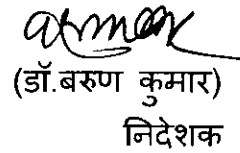 (डॉ.बरुण कुमार)
निदेशक